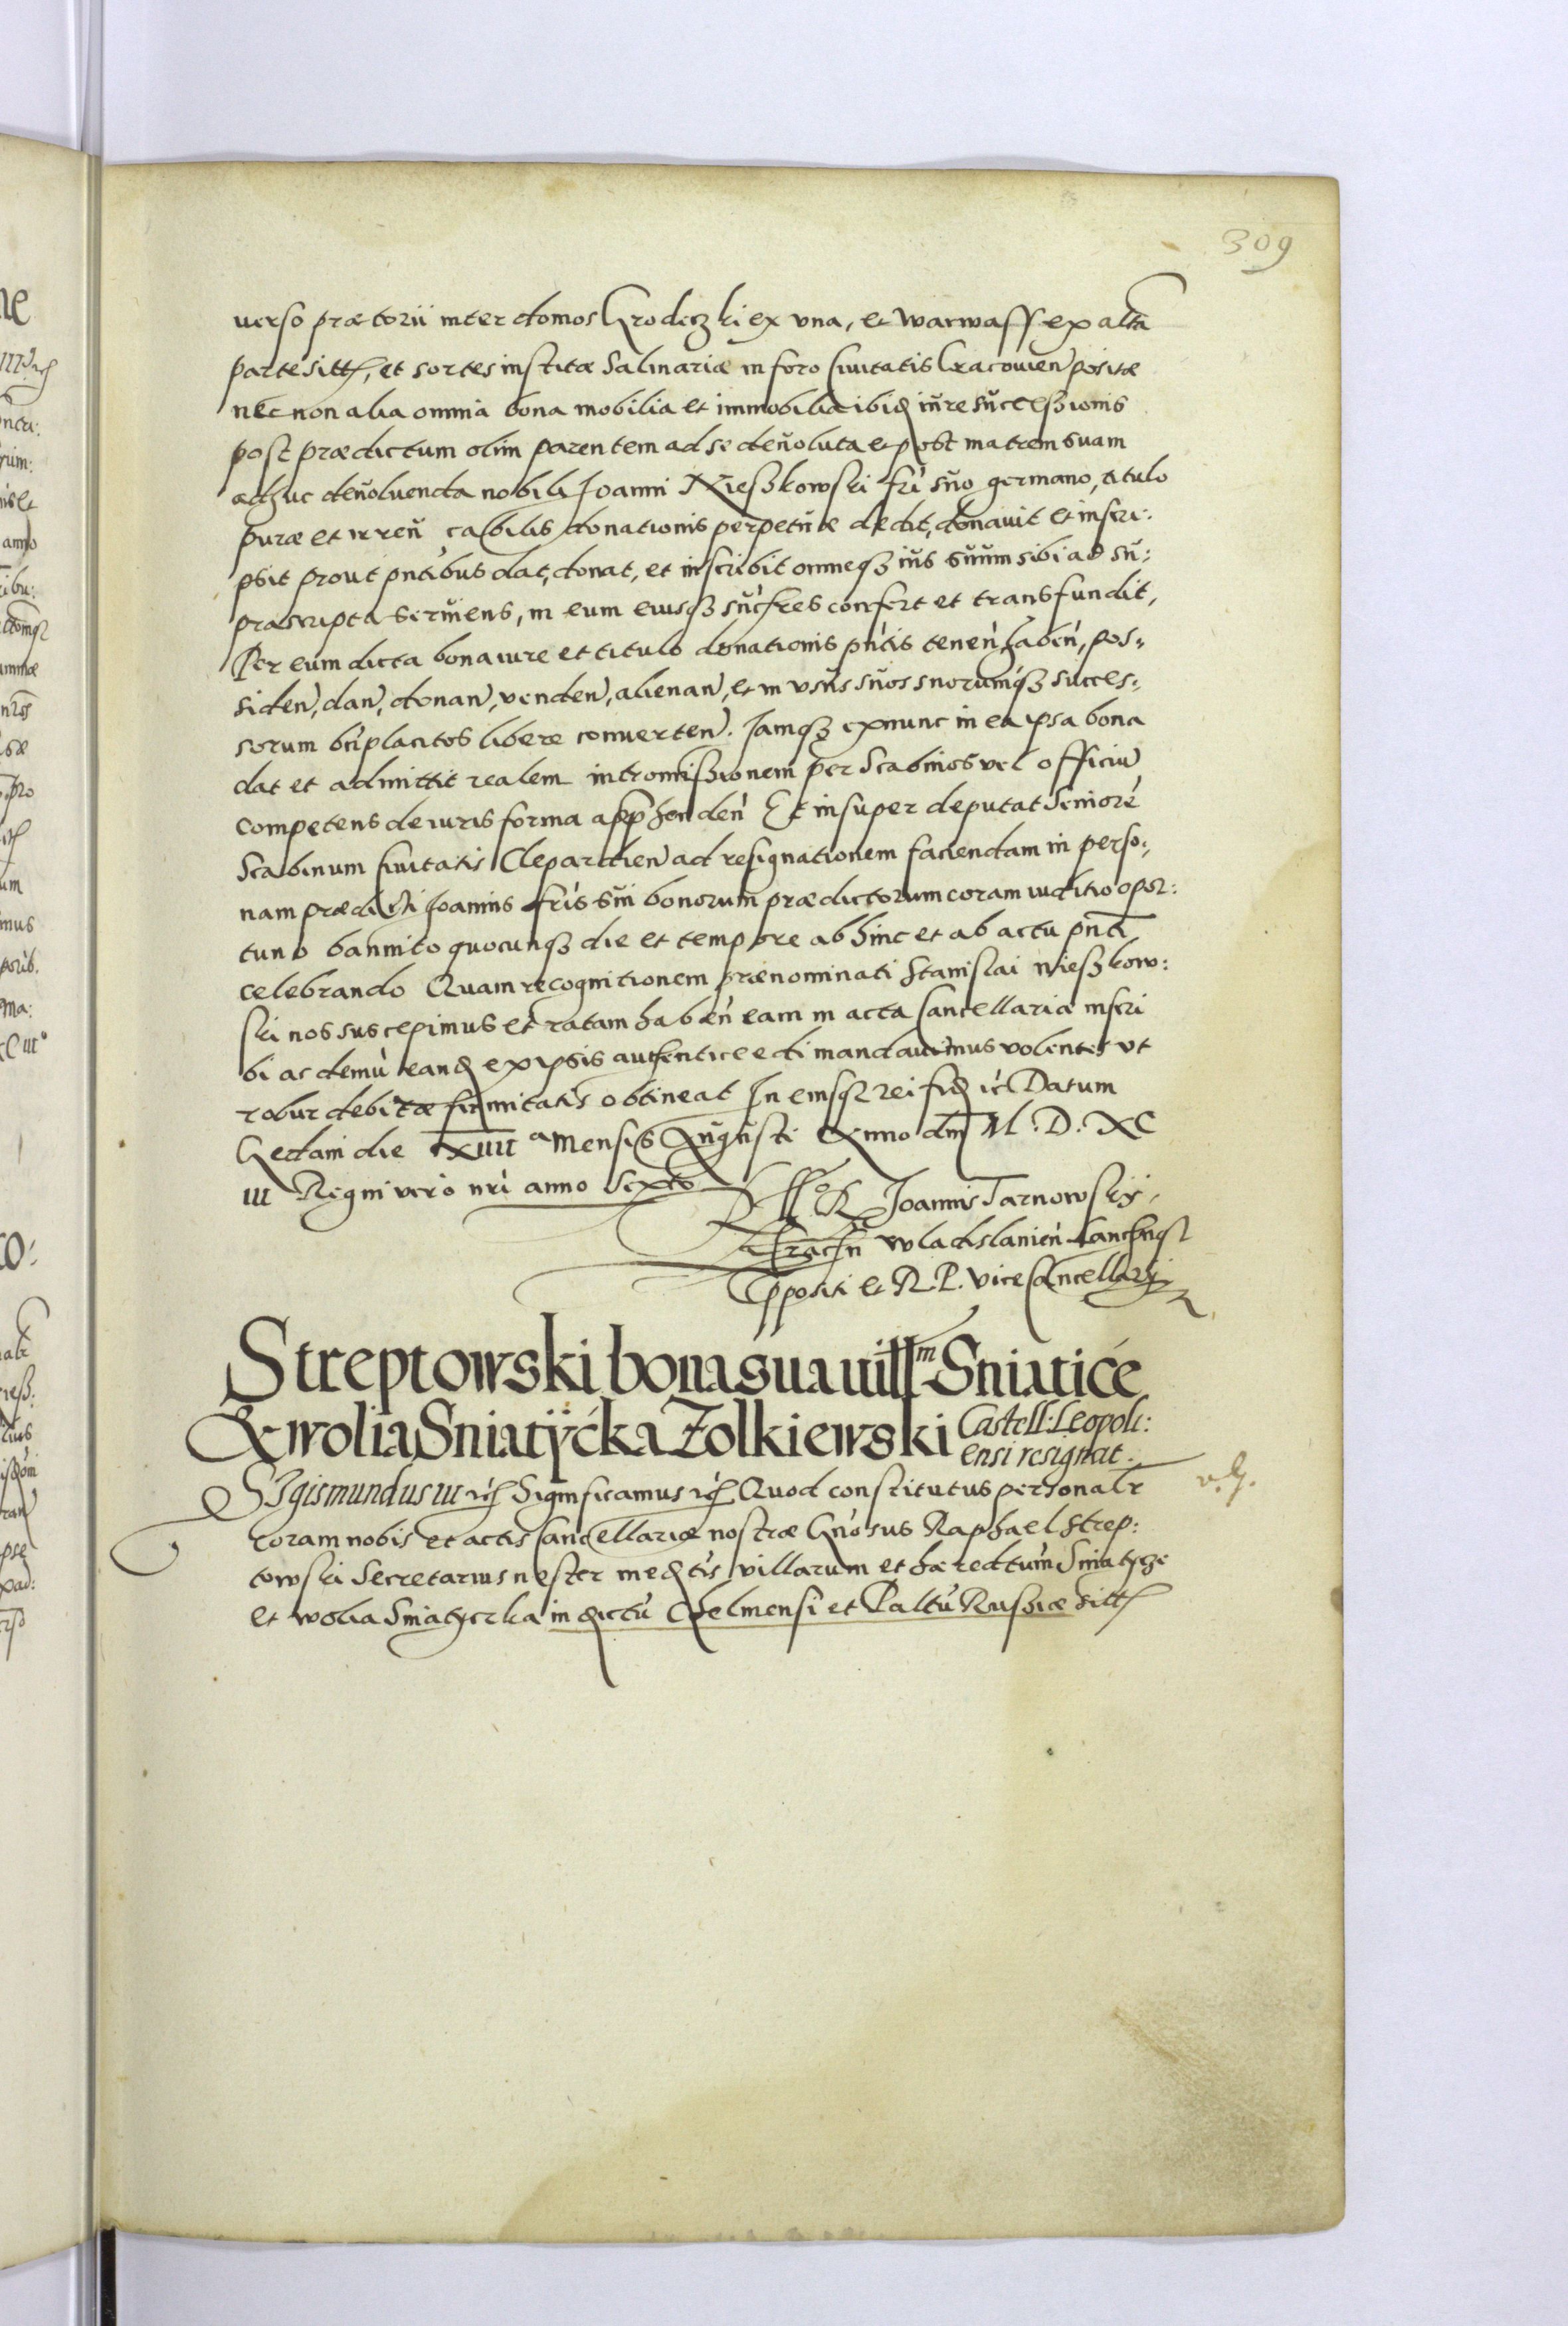 309
uerso prætorii inter domos Grodeczki ex vna, et Warwass ex altā
parte sitt, et sortes institæ Salinariæ in foro Ciuitatis Cracouien positæ
nec non alia omnia bona mobilia et immobilia ibid iure successionis
post prædictum olim parentem ad se deuoluta et post matrem suam
adhuc deuoluenda nobili Joanni Nieszkowski fri suo germano, titulo
puræ et irreu cabilis donationis perpetuæ dedit, donauit et inscri:
psit prout pntibus dat, donat, et inscribit omneqz ius suum sibi ad su:
præscripta seruiens, in eum eiusqz sucfres confert et transfundit,
Per eum dicta bona iure et titulo donationis pntis tenen, haben, pos:
siden, dan, donan, venden, alienan, et in vsus suos suorumqz succes:
sorum bnplacitos libere conuerten. Iamqz exnunc in ea ipsa bona
dat et admittit realem intromissionem per Scabinos vel officiu
competens de iuris forma apphenden Et insuper deputat Seniore
Scabinum Ciuitatis Clepardien ad resignationem faciendam in perso:
nam prædicti Joannis fris sui bonorum prædictorum coram iuditio opor:
tuno bannito quocunqz die et tempore ab hinc et ab actu pnti
celebrando Quam recognitionem prænominati Stanislai Nieszkow:
ski nos suscepimus et ratam haben eam in acta Cancellaria inscri
bi ac demu eand ex ipsis authentice edi mandauimus volentes vt
robur debitæ firmitatis obtineat In cuius rei fid ic Datum
Gedani die XIIII a Mensis Augusti Anno dni M. D. XC
III Regni vero nri anno Sexto
Joannis Tarnowski,
Wladislauien Lancinqz
ppositi et R. P. Vice Cancellarij
Streptowski bona sua uill m Sniatice
& wolia Sniatycka Zolkiewski Castell: Leopoli:
ensi resignat.
Sigismundus III ic Significamus ic Quod constitutus personalr
coram nobis et actis Cancellariæ nostræ Gnosus Raphael Strep:
towski Secretarius noster medtis villarum et hæredtum Sniatyche
et Wolia Sniatyczka in dictu Chelmensi et Paltu Russiæ sitt